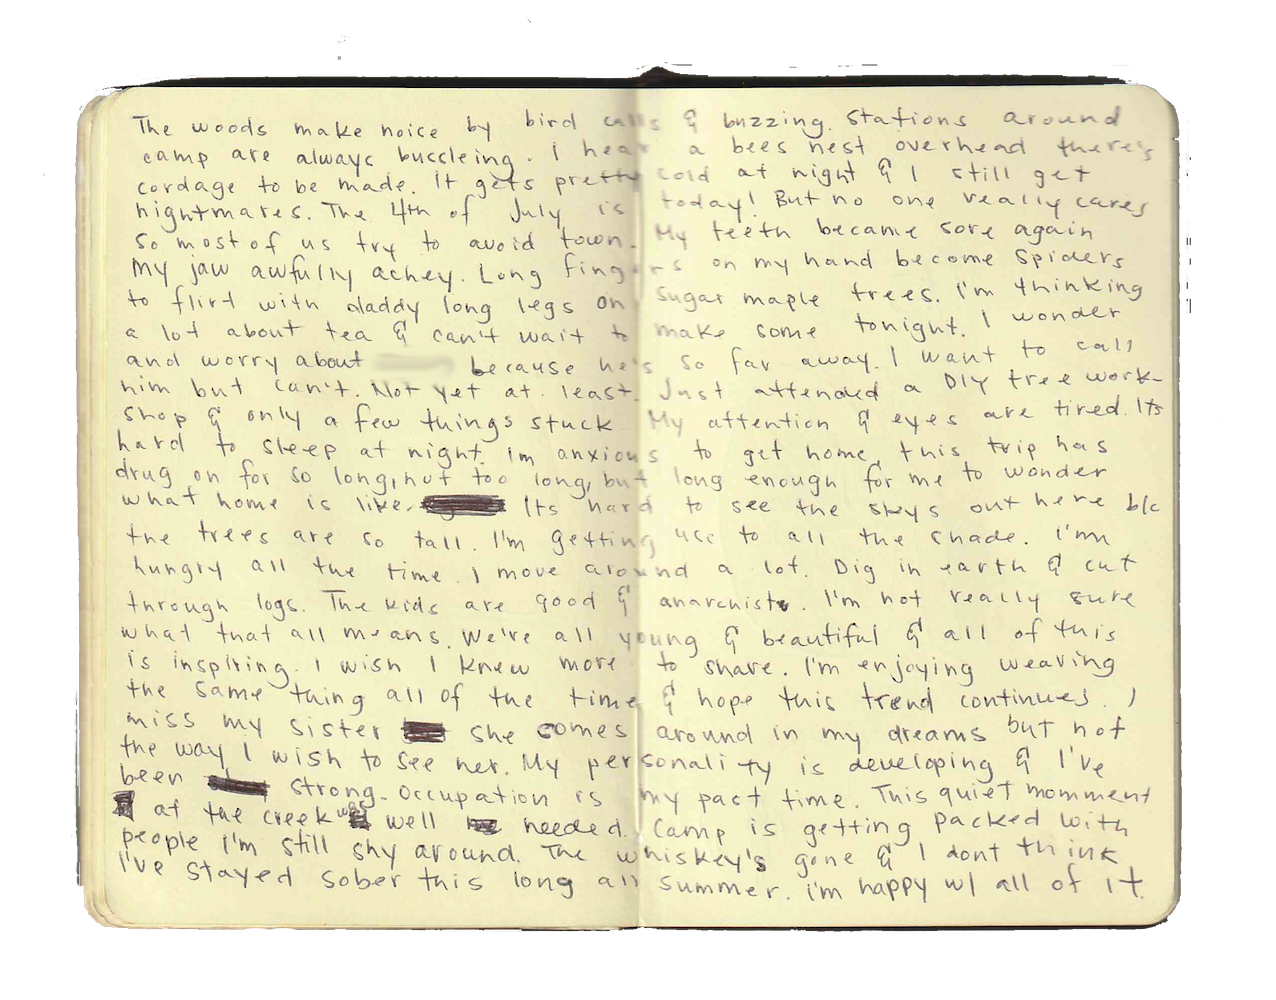 The woods make noise by bird calls & buzzing. Stations around
camp are always bussleing. I hear a bees nest overhead there's
cordage to be made. It gets pretty cold at night & I still get
nightmares. The 4th of July is today! But no one really cares
so most of us try to avoid town. My teeth became sore again
My jaw awfully achey. Long fingers on my hand become spiders
to flirt with daddy long legs on sugar maple trees. I'm thinking
a lot about tea & can't wait to make some tonight. I wonder
and worry about because he's so far away. I want to call
him but can't. Not yet at least. Just attended a DIY tree work-
shop & only a few things stuck. My attention & eyes are tired. Its
hard to sleep at night. im anxious to get home, this trip has
drug on for so long, not too long, but long enough for me to wonder
what home is like. Its hard to see the skys out here b/c
the trees are so tall. I'm getting use to all the shade. I'm
hungry all the time. I move around a lot. Dig in earth & cut
through logs. The kids are good & anarchists. I'm not really sure
what that all means. We're all young & beautiful & all of this
is inspiring. I wish I knew more to share. I'm enjoying weaving
the same thing all of the time & hope this trend continues. I
miss my sister she comes around in my dreams but not
the way I wish to see her. My personality is developing & I've
been strong. Occupation is my past time. This quiet momment
at the creek was well needed. Camp is getting packed with
people I'm still shy around. The whiskey's gone & I dont think
I've stayed sober this long all summer. i'm happy w/ all of it.